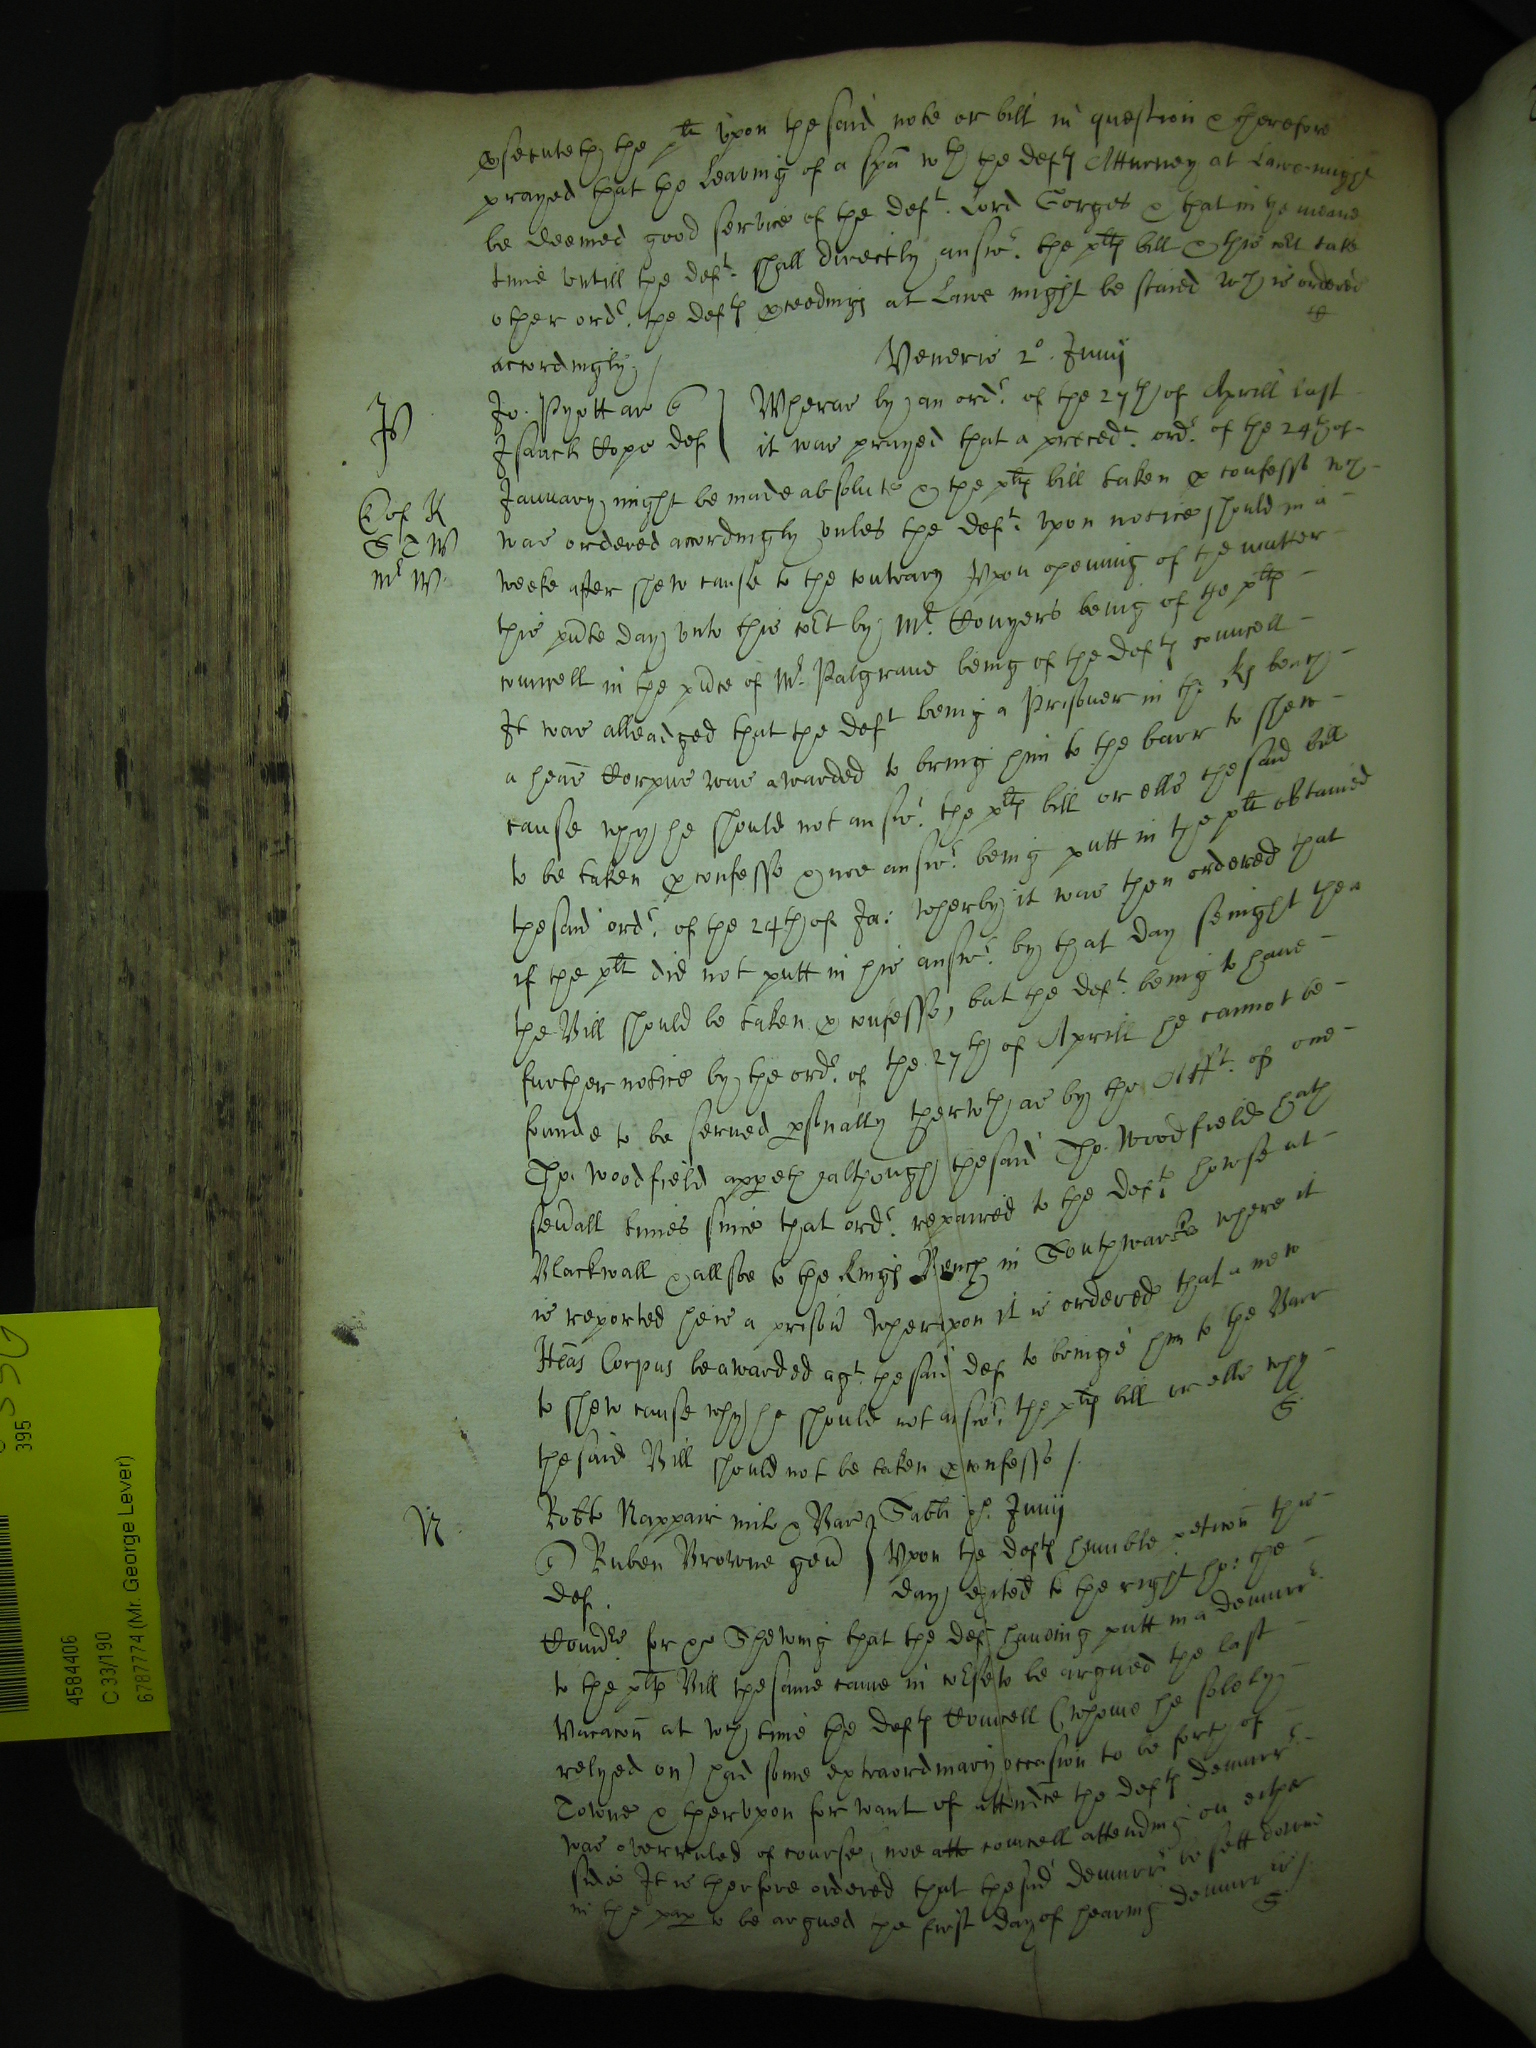 psecuteth the plt vpon the said note or bill in question & therefore
prayed that the leaving of a spa wth the defts Atturney at Lawe might
be deemed good service of the deft. Lord Gorges & that in the meane
time vntill the deft. shall directly answ. the plts bill & this cort take
other ordr. the defts pceedings at Lawe might be staied wch is ordered
accordingly /
Veneris 2o. Junij
P
Jo. Pyott ar q
Isaack Pope def
Wheras by an ordr. of the 27th of Aprill last
it was prayed that a precedt. ordr. of the 24th of
January might be made absolute & the plts bill taken p confesso wch
was ordered accordingly vnles the deft. vpon notice should in a
S T W
Mr W
weeke after shew cause to the contrary Vpon opening of the matter
this pnte day vnto this cort by Mr. Conyers being of the plts
councell in the pnce of Mr. Palgrave being of the defts councell
It was alleadged that the deft being a Prisoner in the Ks bench
a heas Corpus was awarded to bring him to the barr to shew
cause why he should not answ. the plts bill or else the said bill
to be taken p confesso & noe answr. being putt in the plt obtained
the said ordr. of the 24th of Ja: wherby it was then ordered that
if the plt did not putt in his answr. by that day senight then
the Bill should be taken p confesso, but the deft. being to have
further notice by the ordr. of the 27th of Aprill he cannot be
founde to be served psonally therwth as by the Afft. of one
Tho. Woodfield appeth although the said Tho. Woodfield hath
seuall times since that ordr. repaired to the defts howse at
Blackwall & allsoe to the Kings Bench in Southwarke where it
is reported he is a prisonr Wherevpon it is ordered that a new
Heas Corpus be awarded agt. the said def to bringe him to the Barr
to shew cause why he should not answ. the plts bill or else why
the said Bill should not be taken p confesso /.
S
N
Robte Nappair mile & Bar q
Ruben Browne gen
def
Sabti 3o. Junij
Vpon the defts humble peticon this
day exited to the right ho: the
Comrs for &c Shewing that the def haveing putt in a demurrr.
to the plts Bill the same came in corse to be argued the last
Vacacon at wch time the defts Councell (whome he solely
relyed on) had some extraordinary occasion to be forth of
Towne & thervpon for want of attendce the defts demurrr
was overruled of course, noe atto councell attending on either
side It is therfore ordered that the sd demurrr be sett downe
in the pap to be argued the first day of hearing demurrrs /.
S
4584406
C 33/190
6787774 (Mr. George Lever)
395